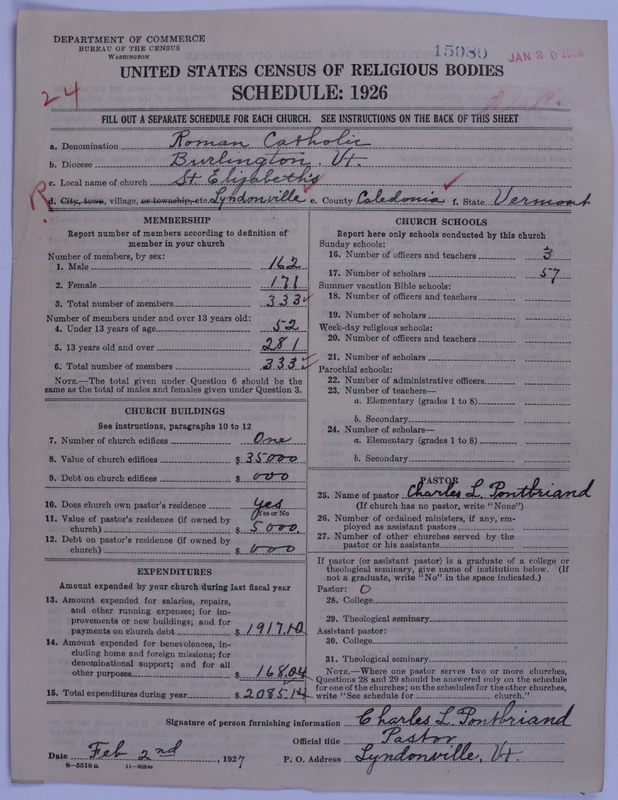 DEPARTMENT OF COMMERCE
BUREAU OF THE CENSUS
WASHINGTON
15080
JAN 3 0
24
UNITED STATES CENSUS OF RELIGIOUS BODIES
SCHEDULE: 1926
FILL OUT A SEPARATE SCHEDULE FOR EACH CHURCH. SEE INSTRUCTIONS ON THE BACK OF THIS SHEET
a. Denomination Roman Catholic
b. Diocese Burlington, Vt.
c. Local name of church St Elizabeth's
R
d. City, town, village, or township, etc. Lyndonville e. County Caledonia f. State Vermont
MEMBERSHIP
Report number of members according to definition of
member in your church
Number of members, by sex:
1. Male 162
2. Female 171
3. Total number of members 333
Number of members under and over 13 years old:
4. Under 13 years of age 52
5. 13 years old and over 281
6. Total number of members 333
NOTE.—The total given under Question 6 should be the
same as the total of males and females given under Question 3.
CHURCH BUILDINGS
See instructions, paragraphs 10 to 12
7. Number of church edifices One
8. Value of church edifices $ 35000
9. Debt on church edifices $ 000
10. Does church own pastor's residence yes
(Yes or No
11. Value of pastor's residence (if owned by
church) $ 5000.
12. Debt on pastor's residence (if owned by
church) $ 000
EXPENDITURES
Amount expended by your church during last fiscal year
13. Amount expended for salaries, repairs,
and other running expenses; for im-
provements or new buildings; and for
payments on church debt $ 1917.10
14. Amount expended for benevolences, in-
cluding home and foreign missions; for
denominational support; and for all
other purposes $ 168.04
15. Total expenditures during year $ 2085.14
CHURCH SCHOOLS
Report here only schools conducted by this church
Sunday schools:
16. Number of officers and teachers 3
17. Number of scholars 57
Summer vacation Bible schools:
18. Number of officers and teachers
19. Number of scholars
Week-day religious schools:
20. Number of officers and teachers
21. Number of scholars
Parochial schools:
22. Number of administrative officers
23. Number of teachers—
a. Elementary (grades 1 to 8)
b. Secondary
24. Number of scholars—
a. Elementary (grades 1 to 8)
b. Secondary
PASTOR
25. Name of pastor Charles L. Pontbriand
(If church has no pastor, write "None")
26. Number of ordained ministers, if any, em-
ployed as assistant pastors
27. Number of other churches served by the
pastor or his assistants
If pastor (or assistant pastor) is a graduate of a college or
theological seminary, give name of institution below. (If
not a graduate, write "No" in the space indicated.)
Pastor: O
28. College
29. Theological seminary
Assistant pastor:
30. College
31. Theological seminary
NOTE.—Where one pastor serves two or more churches,
Questions 28 and 29 should be answered only on the schedule
for one of the churches; on the schedules for the other churches,
write "See schedule for church."
Signature of person furnishing information Charles L. Pontbriand
Official title Pastor
Date Feb 2nd, 1927 P. O. Address Lyndonville, Vt.
8—5518a